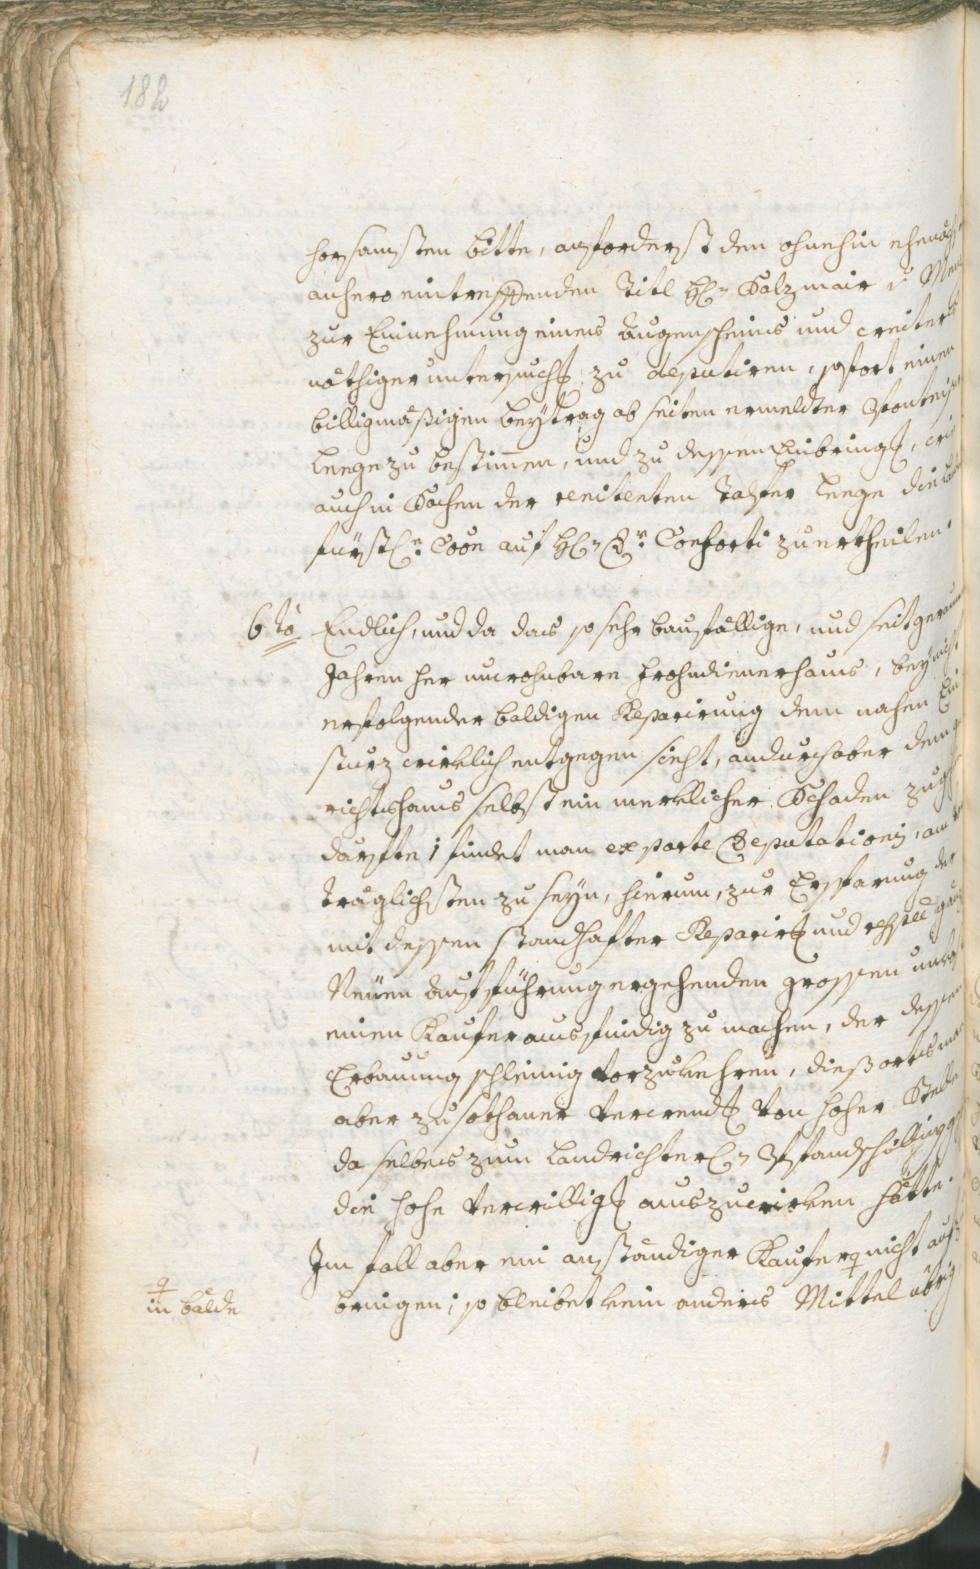 182
horsamsten bitte, anforderst den ohnehin ehen
anhero eintreffenden Titl H: Salzmair v
zur Einnehmung eines Augenscheins und weiter
nöthiger untersuchg zu deputiren, sofort einen
billigmäßigen Beytrag ob seiten ermeldter
Leege zu bestimmen, und zu dessen Einbringg,
auch in Sachen der renitenten Talfer Leege die
fürstl: Coon auf H: Dr: Conforti zu ertheilen.
6to Endlich, und da das so sehr baufällige, und seit geraum
Jahren her unwohnbare Frohndienerhaus, bey nicht
erfolgender baldigen Reparirung dem nahen Ein
sturz wirklich entgegen sieht, andurch aber dem
richtshaus selbst ein merklicher Schaden
dürfte; findet man ex parte Deputationis, am
träglichsten zu seyn, hierum, zur Ersparung der
mit dessen standhafter Reparirg und
Neüen Aufführung ergehenden grossen
einen Kaufer ausfindig zu machen, der dessen
Erbauung schleinig vorzukehren, dießorts
aber zu sothaner Verwendg von hoher Stelle
da selbes zum Landrichter
die hohe Verwilligg auszuwirken hätte.
Im fall aber ein anständiger Kaufer nicht auf
in bälde
bringen; so bleibet kein anders Mittel übrig